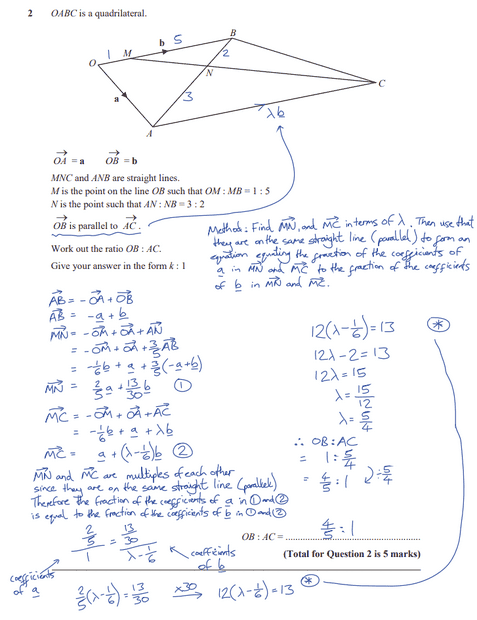 2 OABC is a quadrilateral.
B
b 5
1 M
2
O
N
C
a
3
λb
A
OA = a OB = b
MNC and ANB are straight lines.
M is the point on the line OB such that OM : MB = 1 : 5
N is the point such that AN : NB = 3 : 2
OB is parallel to AC.
Work out the ratio OB : AC.
Give your answer in the form k : 1
Method: Find MN, and MC in terms of λ. Then use that
they are on the same straight line (parallel) to form an
equation equating the fraction of the coefficients of
a in MN and MC to the fraction of the coefficients
of b in MN and MC.
AB = -OA + OB
AB = -a + b
MN = -OM + OA + AN
= -OM + OA + 3/5 AB
= -1/6 b + a + 3/5(-a+b)
MN = 2/5 a + 13/30 b ①
MC = -OM + OA + AC
= -1/6 b + a + λb
MC = a + (λ-1/6)b ②
MN and MC are multiples of each other
since they are on the same straight line (parallel).
Therefore the fraction of the coefficients of a in ① and ②
is equal to the fraction of the coefficients of b in ① and ②
2/5 / 1 = 13/30 / λ-1/6
coefficients
of b
coefficients
of a
2/5(λ-1/6) = 13/30 ×30 → 12(λ-1/6) = 13 *
12(λ-1/6) = 13 *
12λ-2 = 13
12λ = 15
λ = 15/12
λ = 5/4
∴ OB : AC
= 1 : 5/4
= 4/5 : 1 ÷5/4
OB : AC = 4/5 : 1
(Total for Question 2 is 5 marks)